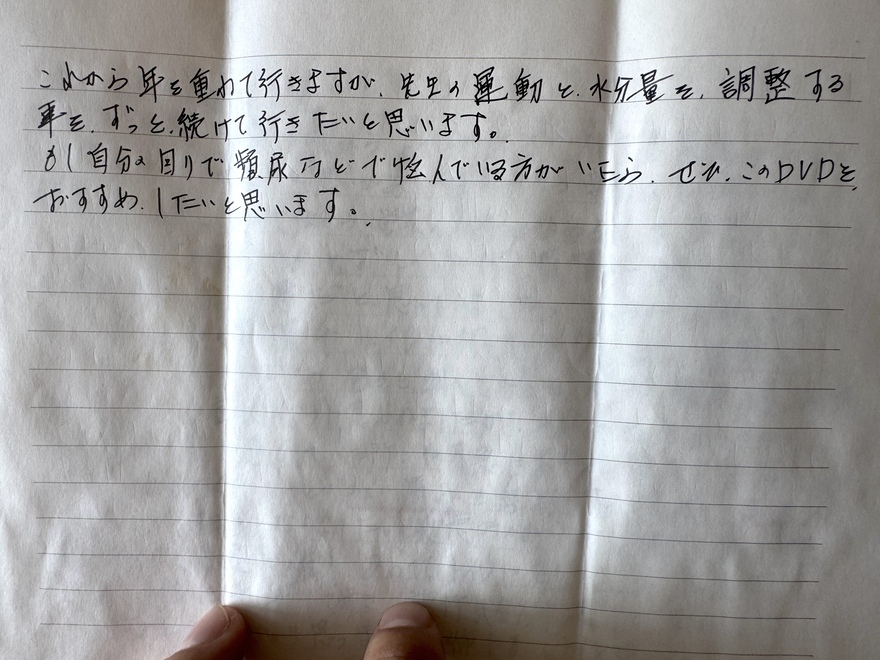 これから年を重ねて行きますが、先生の運動と、水分量を、調整する
事を、ずっと、続けて行きたいと思います。
もし自分の回りで頻尿などで悩んでいる方がいたら、ぜひ、このDVDを、
おすすめ、したいと思います。